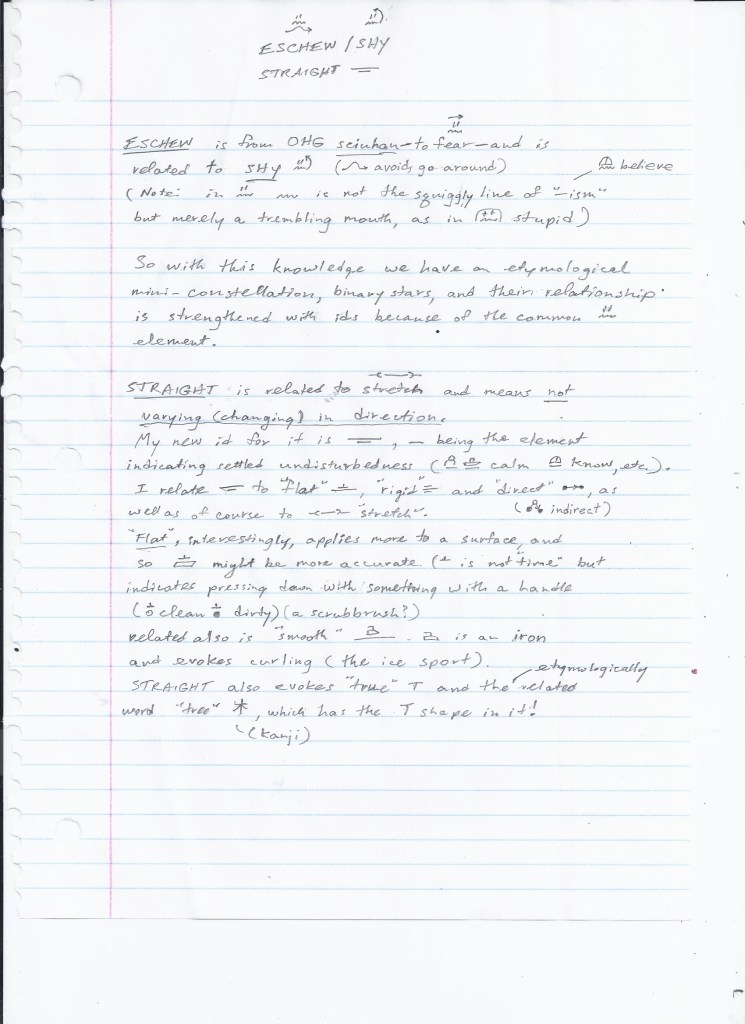 ESCHEW / SHY
STRAIGHT =
ESCHEW is from OHG sciuhan - to fear - and is
related to SHY (avoid, go around) believe
(Note: in is not the squiggly line of "-ism"
but merely a trembling mouth, as in stupid)
So with this knowledge we have an etymological
mini-constellation, binary stars, and their relationship
is strengthened with ids because of the common
element.
STRAIGHT is related to stretch and means not
varying (changing) in direction.
My new id for it is =, - being the element
indicating settled undisturbedness ( calm know, etc.).
I relate = to "flat", "rigid" and "direct", as
well as of course to "stretch". ( indirect)
"Flat", interestingly, applies more to a surface, and
so might be more accurate ( is not "time" but
indicates pressing down with something with a handle
( clean dirty) (a scrubbrush?)
related also is "smooth" . is an iron
and evokes curling (the ice sport).
etymologically
STRAIGHT also evokes "true" T and the related
word "tree" 木, which has the T shape in it!
(Kanji)